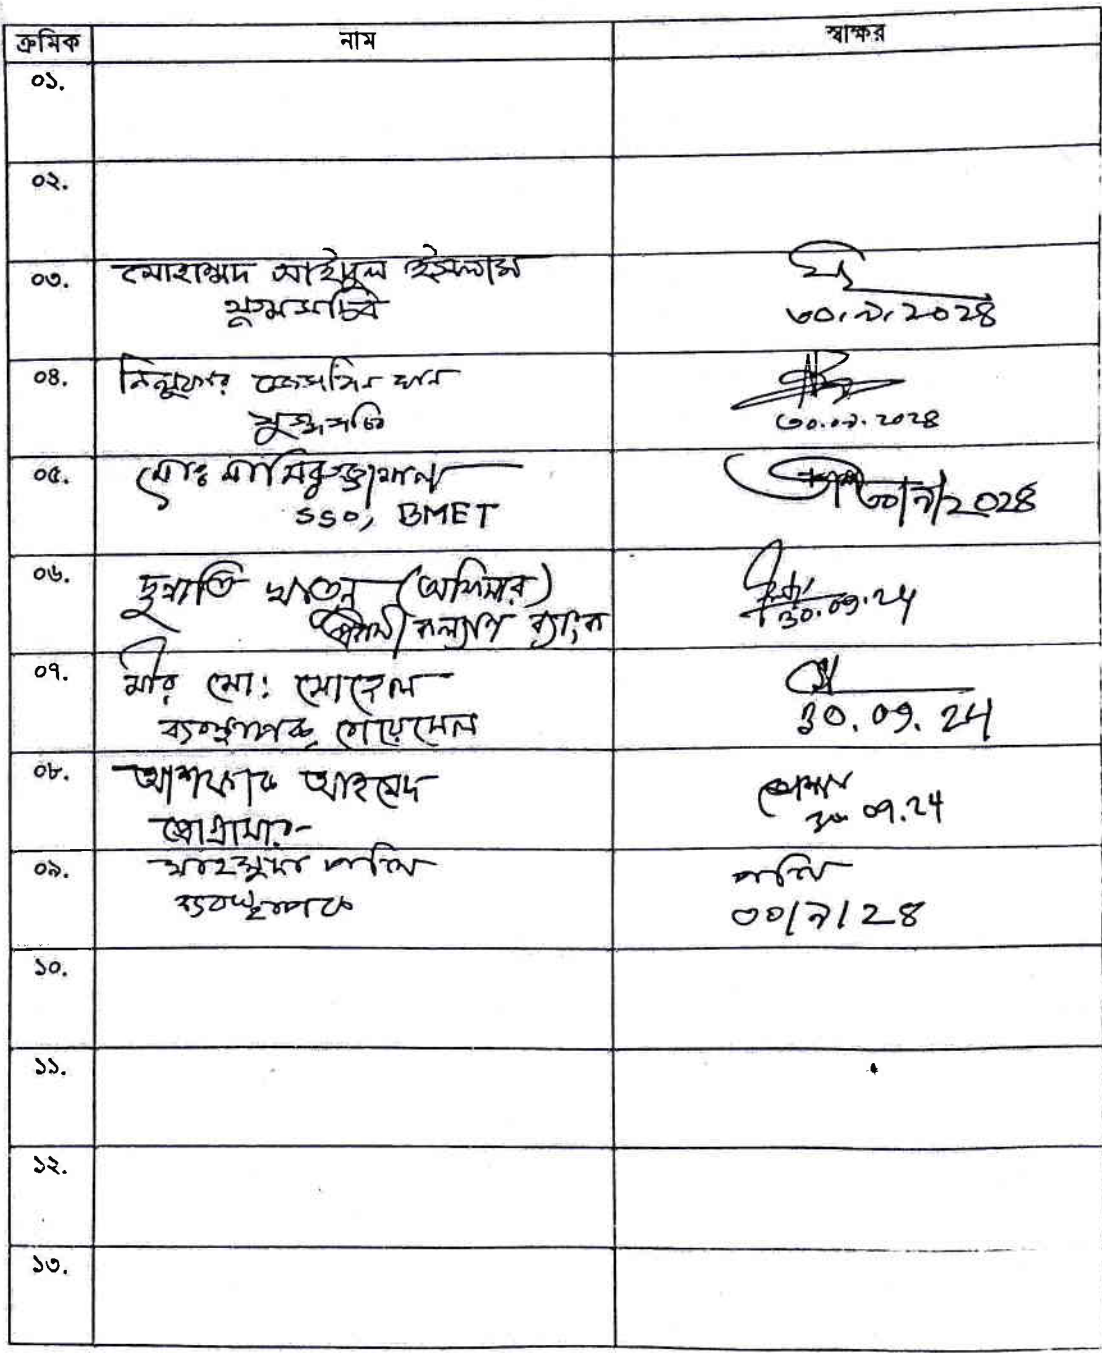 ক্রমিক নাম স্বাক্ষর
০১.
০২.
০৩. মোহাম্মদ সাইদুল ইসলাম
যুগ্মসচিব
৩০.৯.২০২৪
০৪. নিলুফার জেসমিন খান
যুগ্মসচিব
৩০.০৯.২০২৪
০৫. মোঃ নাসিরুজ্জামান ৩০/৯/২০২৪
SSO, BMET
০৬. খাতুন (অফিসার)
কল্যাণ ব্যাংক
30.09.24
০৭. মীর মো: সোহেল
ব্যবস্থাপক, বোয়েসেল
30.09.24
০৮. আশফাক আহমেদ
প্রোগ্রামার
30.09.24
০৯. মাহমুদা পলি পলি
ব্যবস্থাপক
৩০/৯/২৪
১০.
১১.
১২.
১৩.